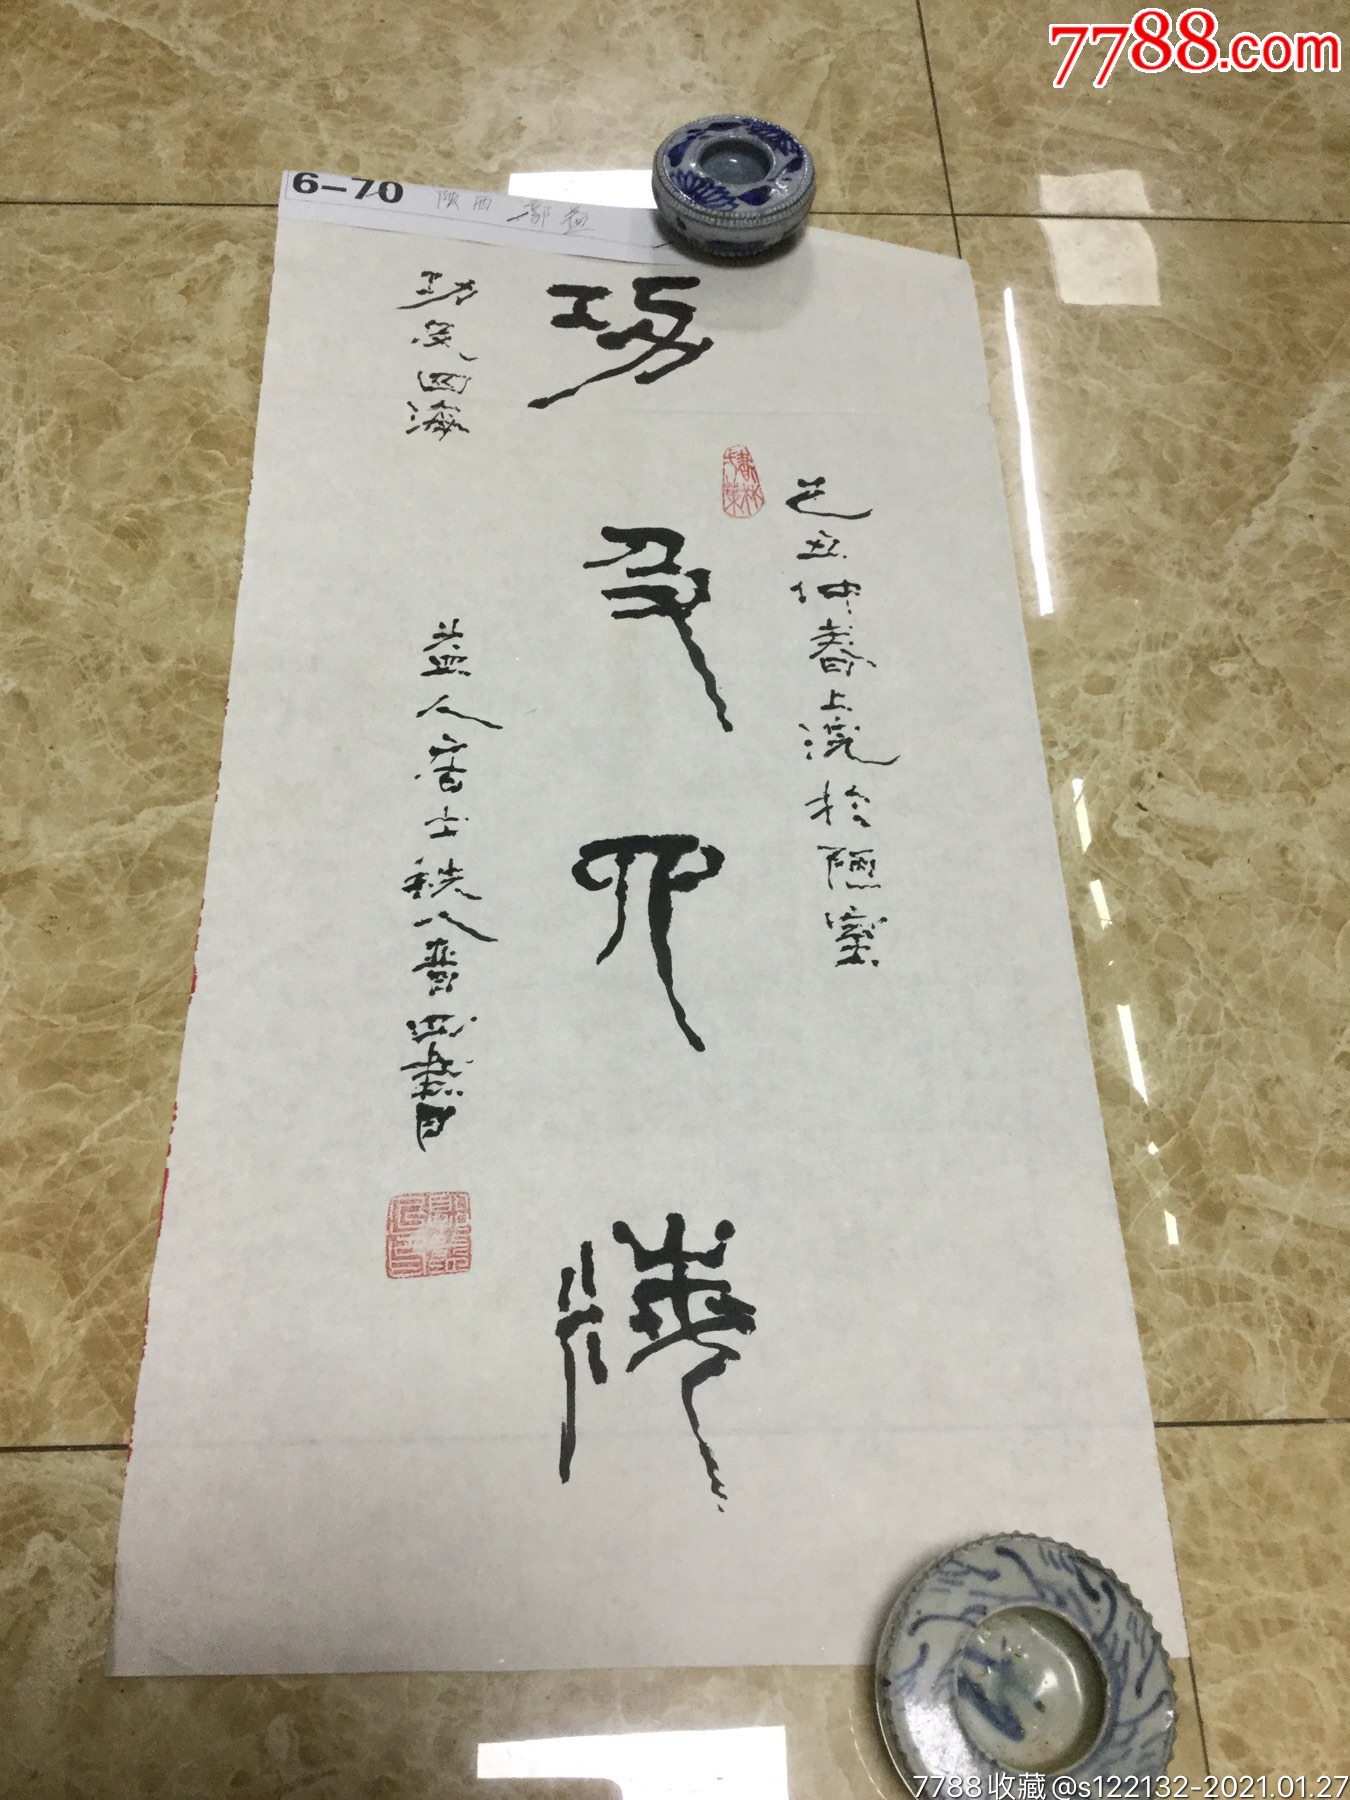 7788.com
6-70 陕西
功及四海
己丑仲春上浣於陋室
功及四海
益人居士秩八晋四書
7788收藏@s122132-2021.01.27